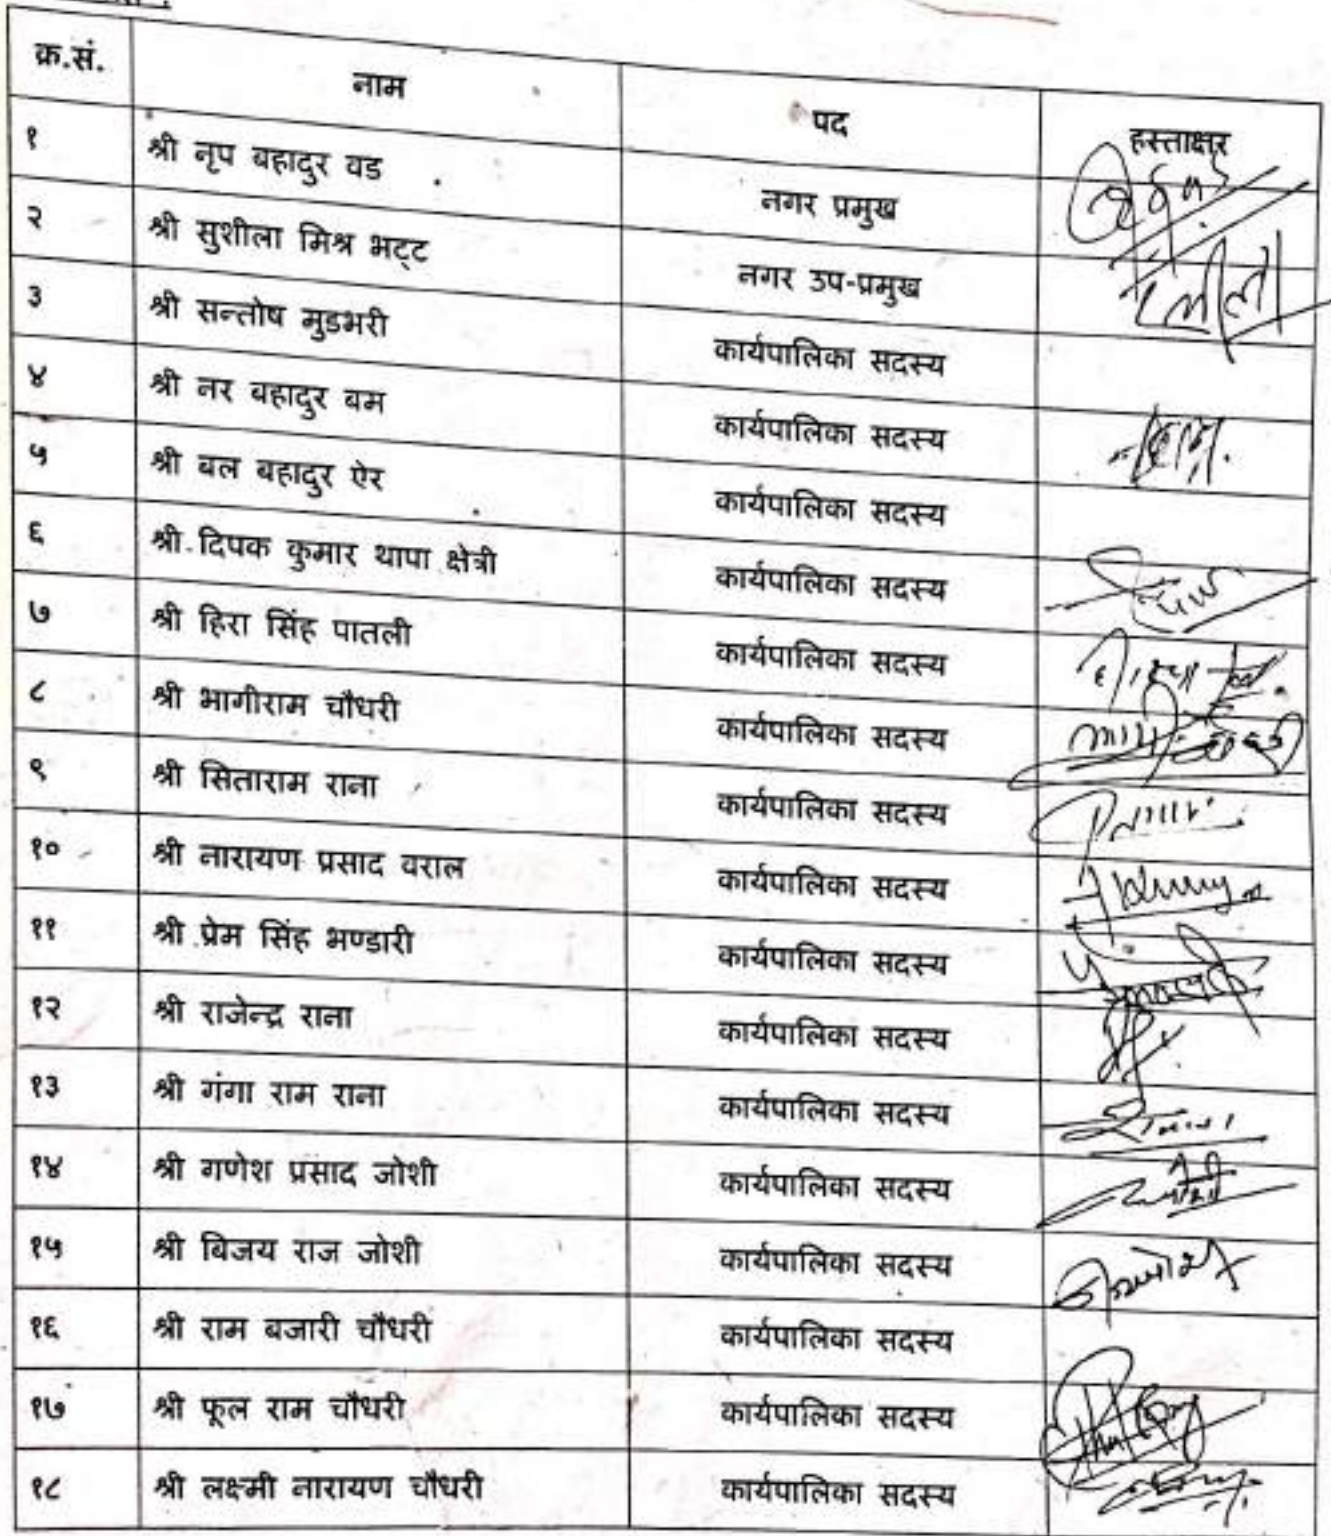 क्र.सं. नाम पद हस्ताक्षर
१ श्री नृप बहादुर वड नगर प्रमुख
२ श्री सुशीला मिश्र भट्ट नगर उप-प्रमुख
३ श्री सन्तोष मुडभरी कार्यपालिका सदस्य
४ श्री नर बहादुर बम कार्यपालिका सदस्य
५ श्री बल बहादुर ऐर कार्यपालिका सदस्य
६ श्री दिपक कुमार थापा क्षेत्री कार्यपालिका सदस्य
७ श्री हिरा सिंह पातली कार्यपालिका सदस्य
८ श्री भागीराम चौधरी कार्यपालिका सदस्य
९ श्री सिताराम राना कार्यपालिका सदस्य
१० श्री नारायण प्रसाद वराल कार्यपालिका सदस्य
११ श्री प्रेम सिंह भण्डारी कार्यपालिका सदस्य
१२ श्री राजेन्द्र राना कार्यपालिका सदस्य
१३ श्री गंगा राम राना कार्यपालिका सदस्य
१४ श्री गणेश प्रसाद जोशी कार्यपालिका सदस्य
१५ श्री बिजय राज जोशी कार्यपालिका सदस्य
१६ श्री राम बजारी चौधरी कार्यपालिका सदस्य
१७ श्री फूल राम चौधरी कार्यपालिका सदस्य
१८ श्री लक्ष्मी नारायण चौधरी कार्यपालिका सदस्य